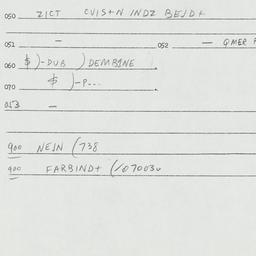 050 ZICT CVIS+N INDZ BEJD+
051 — 052 — QMER
060 $)-DUB )DEMBINE
070 $)-P...
053 —
900 NEJN (738
900 FARBIND+ (/07003